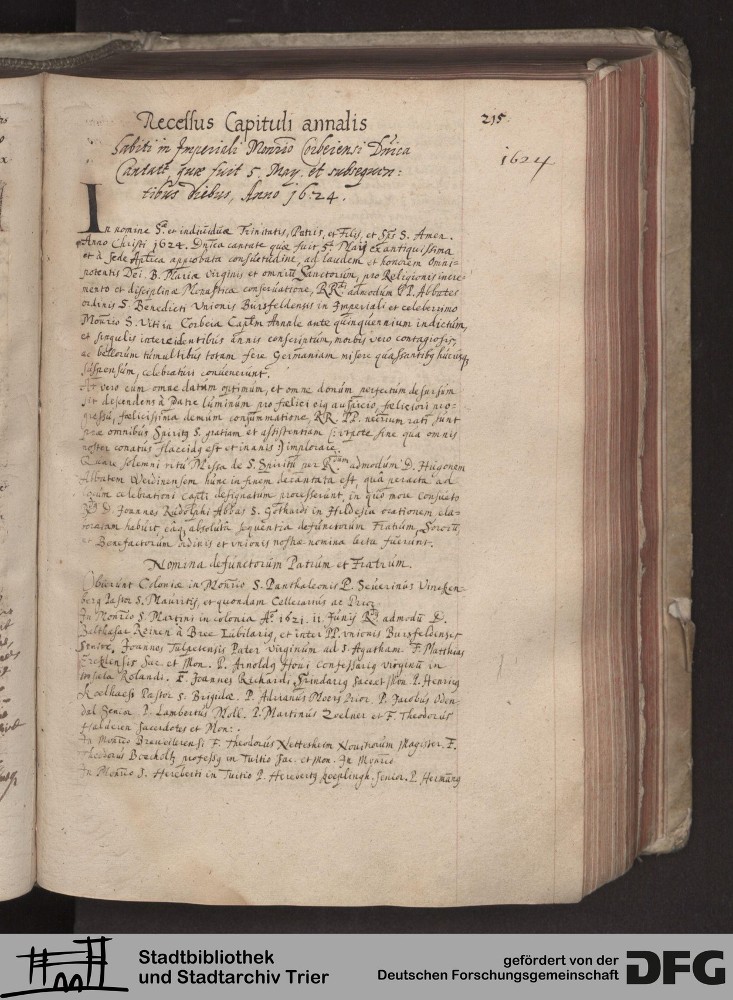 Recessus Capituli annalis
habiti in Imperiali Monrio Corbeiensi Dnica
Cantate, quæ fuit 5. May. et subsequen:
tibus diebus, Anno 1624.
215.
1624
In nomine Sæ et individuæ Trinitatis, Patris, et Filij, et Sps S. Amen.
Anno Christi 1624. Dnica cantate quæ fuit 5ta Maij ex antiquissima
et à sede Aplica approbata consuetudine, ad laudem et honorem Omni-
potentis Dei. B. Mariæ virginis et omniu Sanctorum, pro Religionis incre-
mento et disciplinæ Monasticæ conservatione, RRdi admodum PP. Abbates
ordinis S. Benedicti Unionis Bursfeldensis in Imperiali et celeberrimo
Monrio S. Viti in Corbeia Caplm Annale ante quinquennium indictum,
et singulis intercidentibus annis conscriptum, morbis vero contagiosis,
ac bellorum tumultibus totam fere Germaniam misere quassantibq hucusq
suspensum, celebraturi convenerunt.
At vero cum omne datum optimum, et omne donum perfectum desursum
sit descendens à Patre luminum pro fœlici eiq auspicio, fœliciori pro-
gressu, fœlicissima demum consummatione, RR. PP. necrium rati sunt
præ omnibus Spiritq S. gratiam et assistentiam (: utpote sine qua omnis
noster conatus flaccidq est et inanis :) implorare.
Quare solemni ritu Missa de S. Spiritu per Rdum admodum D. Hugonem
Abbatem Werdinensem hunc in finem decantata est, qua peracta ad
locum celebrationi Capli designatum processerunt, in quo more consueto
Rdq D. Joannes Rudolphi Abbas S. Gothardi in Hildesia orationem ela-
boratam habuit, eaq absoluta sequentia defunctorum Fratrum, Sororu,
ac Benefactorum ordinis et unionis nostræ nomina lecta fuerunt.
Nomina defunctorum Patrum et Fratrum.
Obierunt Coloniæ in Monrio S. Panthaleonis P. Severinus Vincken-
berg Pastor S. Mauritij, et quondam Cellerarius ac Prior
In Monrio S. Martini in colonia Ao 1621. 11 Junij Rdq admodu D.
Balthasar Reinen à Bree Iubilariq, et inter PP. unionis Bursfeldenses
Senior. Joannes Tulpetensis Pater Virginum ad S. Agatham. F. Matthias
Ercklensis Sac. et Mon. P. Arnoldq Hovi Confessariq virginu in
insula Rolandi. F. Joannes Richardi, Sac. et Mon. P. Henriq
Koelhaess Pastor S. Brigidæ. P. Adrianus Moers Prior. P. Jacobus Oden-
dal Senior. P. Lambertus Moll. P. Martinus Zoelner et F. Theodorus
Halderen Sacerdotes et Mon:.
In Monrio Brewillerensi F. Theodorus Nettesheim Novitiorum Magister. F.
Theodorus Bocholtz professq in Tuitio Sac. et Mon. In Monrio
In Monrio S. Hereberti in Tuitio P. Herebertq Keeplingh Senior. P. Hermanq
Stadtbibliothek
und Stadtarchiv Trier
gefördert von der
Deutschen Forschungsgemeinschaft
DFG